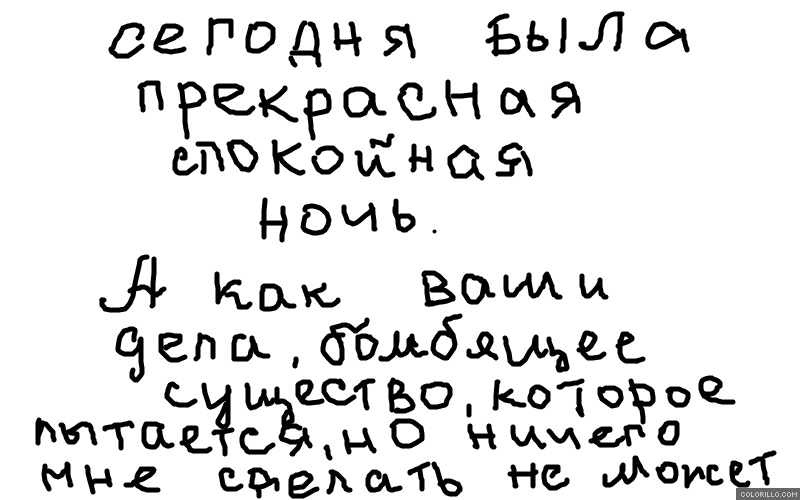 сегодня была
прекрасная
спокойная
ночь.
А как ваши
дела, бомбящее
существо, которое
пытается, но ничего
мне сделать не может
COLORILLO.COM